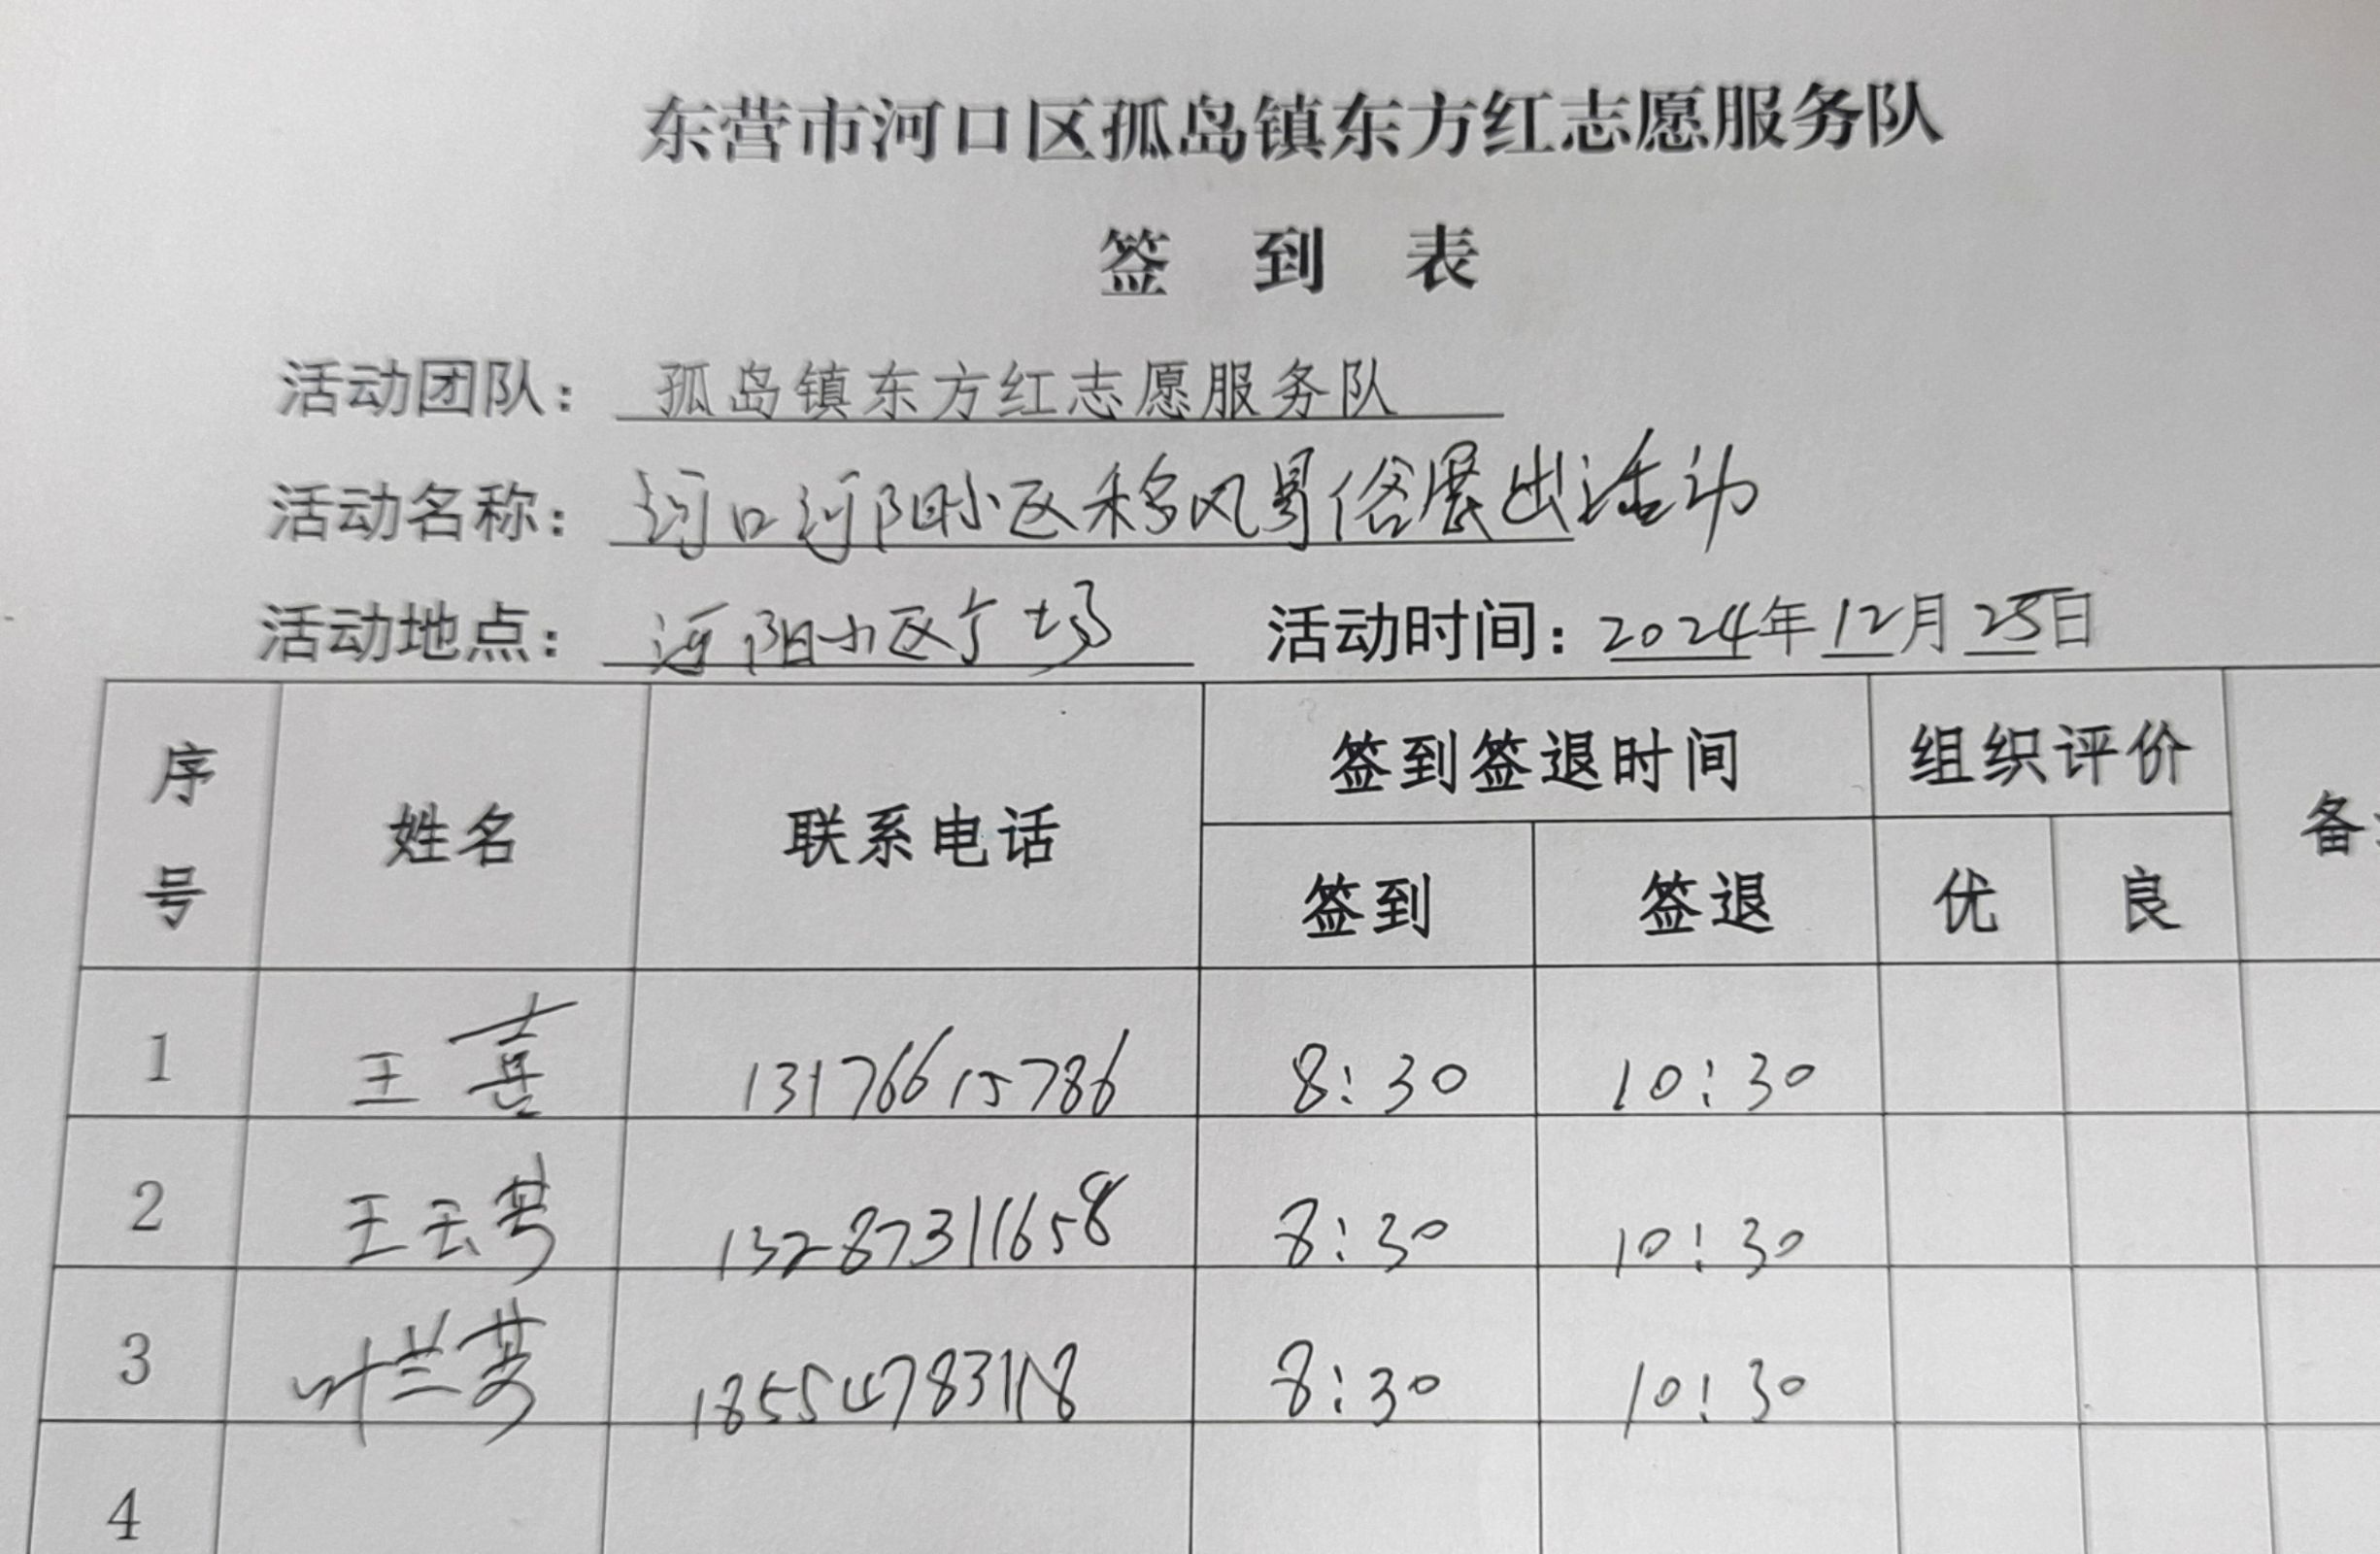 东营市河口区孤岛镇东方红志愿服务队
签 到 表
活动团队： 孤岛镇东方红志愿服务队
活动名称： 河口河阳小区移风易俗展出活动
活动地点： 河阳小区广场 活动时间：2024年12月28日
序号 姓名 联系电话 签到签退时间 组织评价 备
签到 签退 优 良
1 王喜 13176615786 8:30 10:30
2 王云芳 13287311658 8:30 10:30
3 叶兰芬 18554783118 8:30 10:30
4